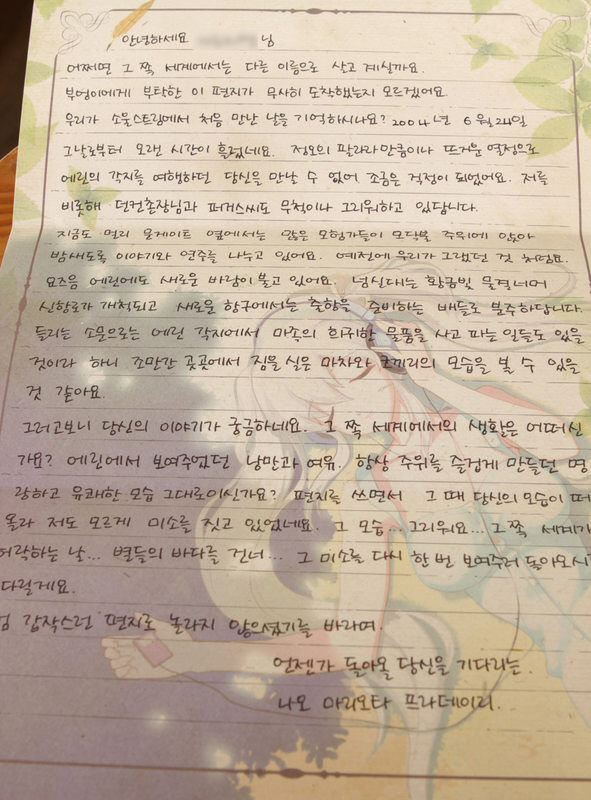 안녕하세요 님
어쩌면 그 쪽 세계에서는 다른 이름으로 살고 계실까요.
부엉이에게 부탁한 이 편지가 무사히 도착했는지 모르겠어요.
우리가 소울스트림에서 처음 만난 날을 기억하시나요? 2004년 6월 24일
그날로부터 오랜 시간이 흘렀네요. 정오의 팔라라만큼이나 뜨거운 열정으로
에린의 각지를 여행하던 당신을 만날 수 없어 조금은 걱정이 되었어요. 저를
비롯해 던컨촌장님과 퍼거스씨도 무척이나 그리워하고 있답니다.
지금도 멀리 문게이트 옆에서는 많은 모험가들이 모닥불 주위에 앉아
밤새도록 이야기와 연주를 나누고 있어요. 예전에 우리가 그랬던 것 처럼요.
요즈음 에린에도 새로운 바람이 불고 있어요. 넘실대는 황금빛 물결너머
신항로가 개척되고 새로운 항구에서는 출항을 준비하는 배들로 분주하답니다.
들리는 소문으로는 에린 각지에서 마족의 희귀한 물품을 사고 파는 일들도 있을
것이라 하니 조만간 곳곳에서 짐을 실은 마차와 코끼리의 모습을 볼 수 있을
것 같아요.
그러고보니 당신의 이야기가 궁금하네요. 그 쪽 세계에서의 생활은 어떠신
가요? 에린에서 보여주었던 낭만과 여유. 항상 주위를 즐겁게 만들던 명
랑하고 유쾌한 모습 그대로이신가요? 편지를 쓰면서 그 때 당신의 모습이 떠
올라 저도 모르게 미소를 짓고 있었네요. 그 모습... 그리워요... 그 쪽 세계가
허락하는 날... 별들의 바다를 건너... 그 미소를 다시 한 번 보여주러 돌아오시
다릴게요.
갑작스런 편지로 놀라지 않으셨기를 바라며.
언젠가 돌아올 당신을 기다리는.
나오 마리오타 프라데이리.